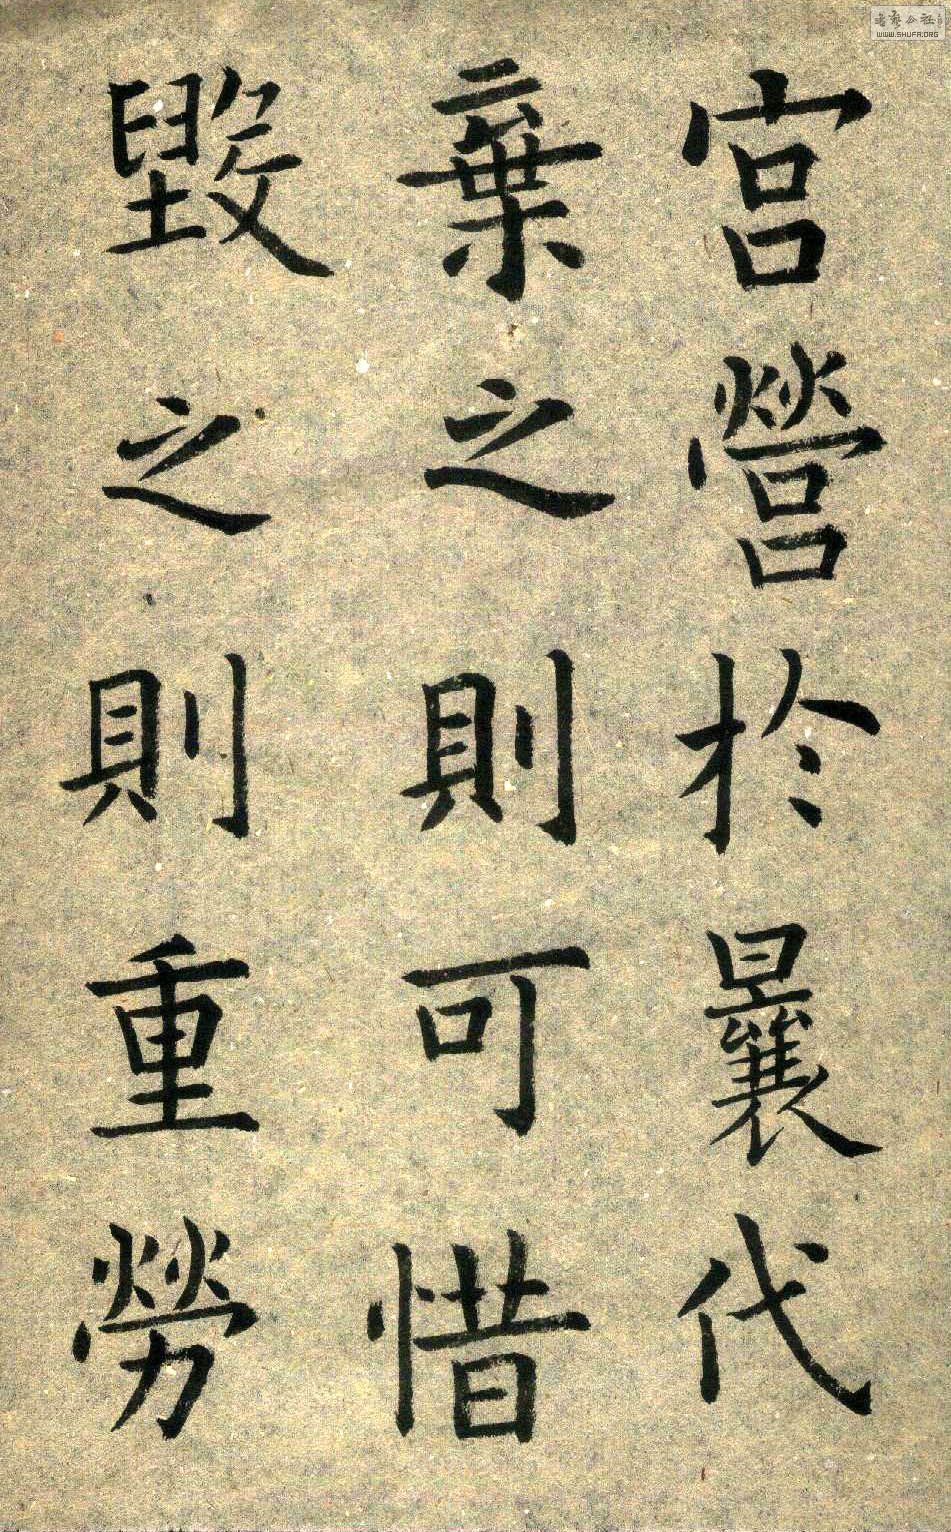 宫營於曩代
棄之則可惜
毀之則重勞
WWW.SHUFA.ORG